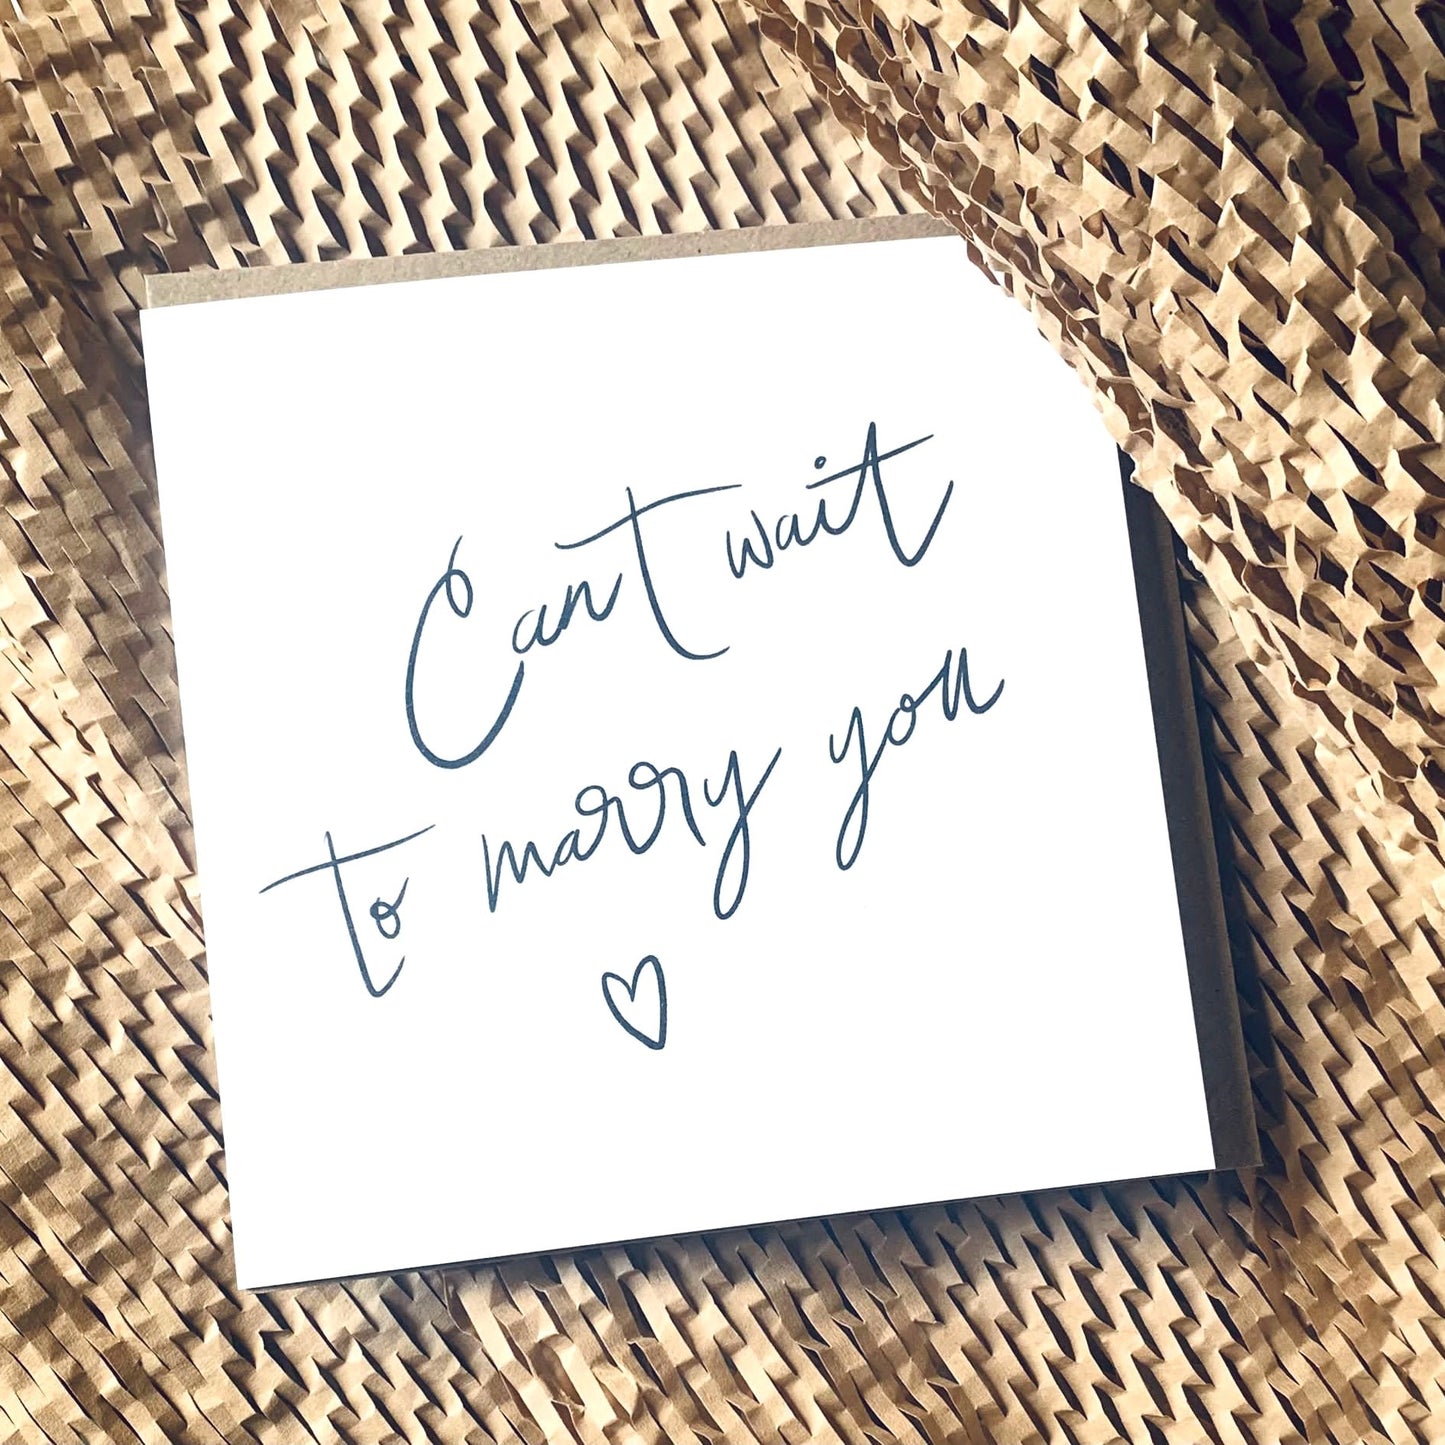 Cant wait
to marry you